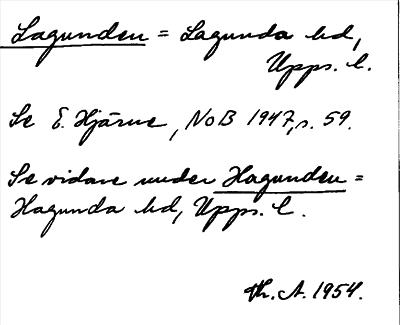 Lagunden = Lagunda hd,
Upps. l.
Se E. Hjärne, NoB 1947, s. 59.
Se vidare under Hagunden =
Hagunda hd, Upps. l.
Th. A. 1954.